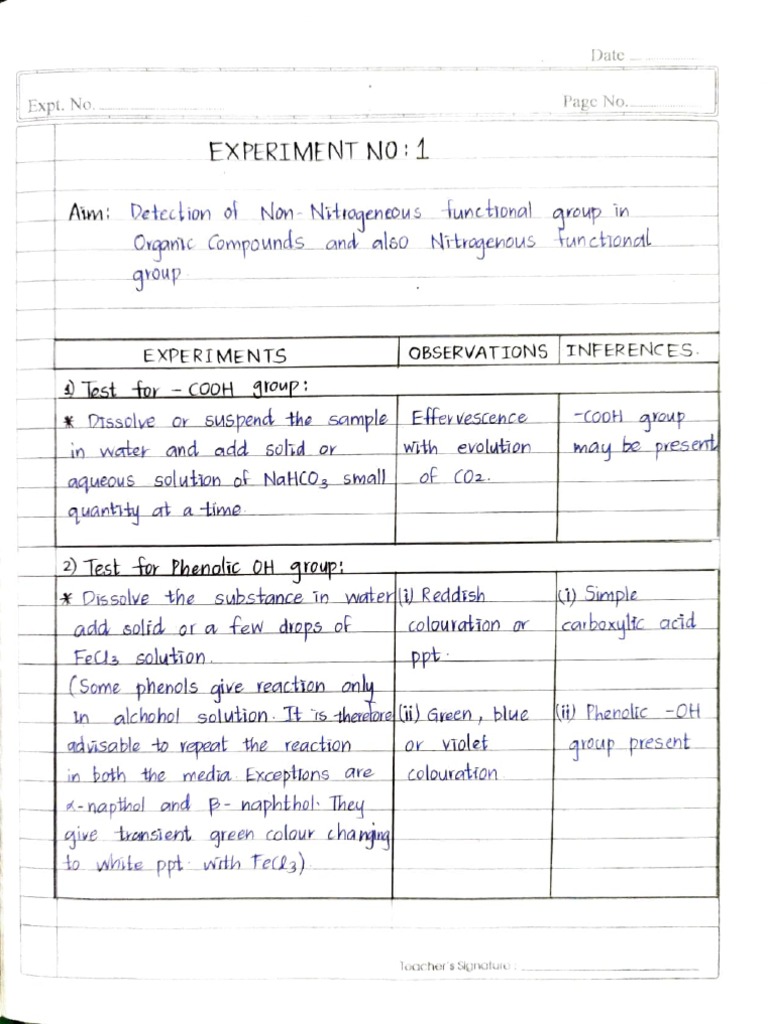 Date
Expt. No.
Page No.
EXPERIMENT NO: 1
Aim: Detection of Non-Nitrogeneous functional group in
Organic Compounds and also Nitrogenous functional
group.
EXPERIMENTS
OBSERVATIONS
INFERENCES.
1) Test for - COOH group:
* Dissolve or suspend the sample
in water and add solid or
aqueous solution of NaHCO3 small
quantity at a time.
Effervescence
with evolution
of CO2.
-COOH group
may be present
2) Test for Phenolic OH group:
* Dissolve the substance in water
add solid or a few drops of
FeCl3 solution.
(Some phenols give reaction only
in alchohol solution. It is therefore
advisable to repeat the reaction
in both the media. Exceptions are
α-napthol and β- naphthol. They
give transient green colour changing
to white ppt. with FeCl3).
(i) Reddish
colouration or
ppt.
(ii) Green, blue
or violet
colouration.
(i) Simple
carboxylic acid
(ii) Phenolic -OH
group present
Teacher's Signature :